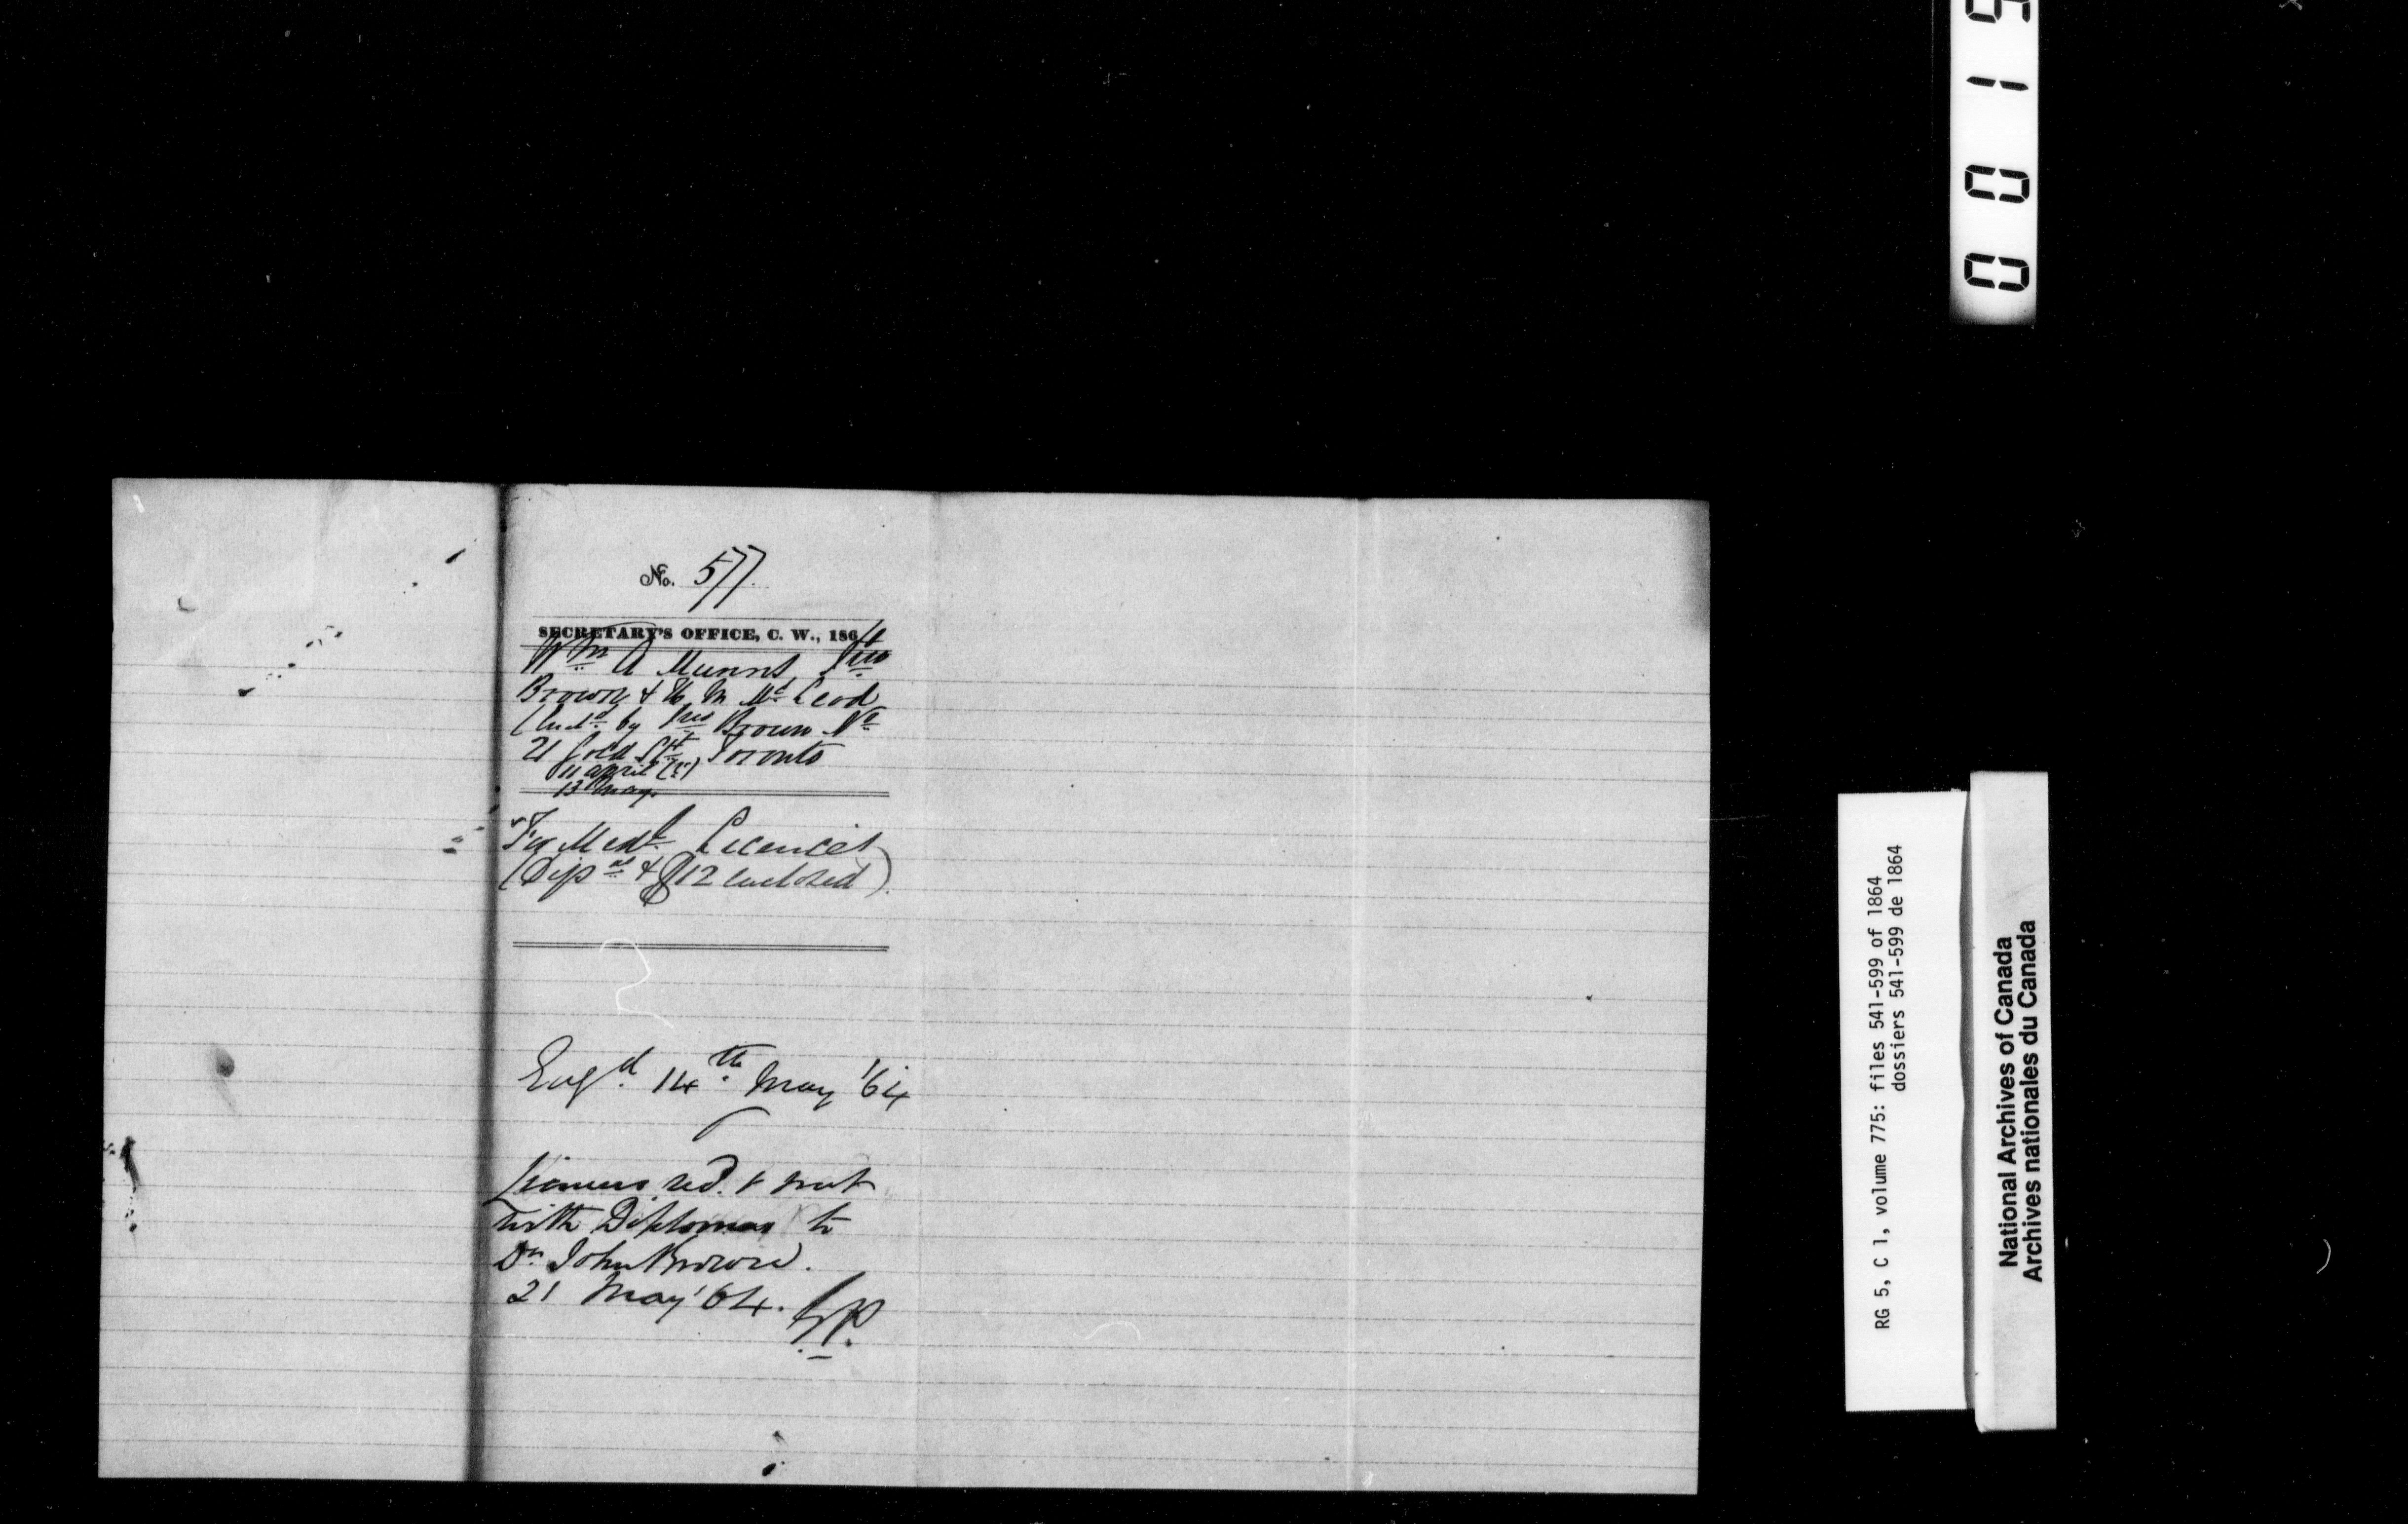 No. 577.
SECRETARY'S OFFICE, C. W., 1864
Wm A Munns, Jno
Brown & M Mc Leod
by Jno Brown No
21 St, Toronto
11 april
13 May
For Medl Licences
(Dips & $12 enclosed).
Engd. 14th May '64
Licenses recd. & sent
with Diplomas to
Dr John Brown.
21 May '64.
0015
RG 5, C 1, volume 775: files 541-599 of 1864
dossiers 541-599 de 1864
National Archives of Canada
Archives nationales du Canada